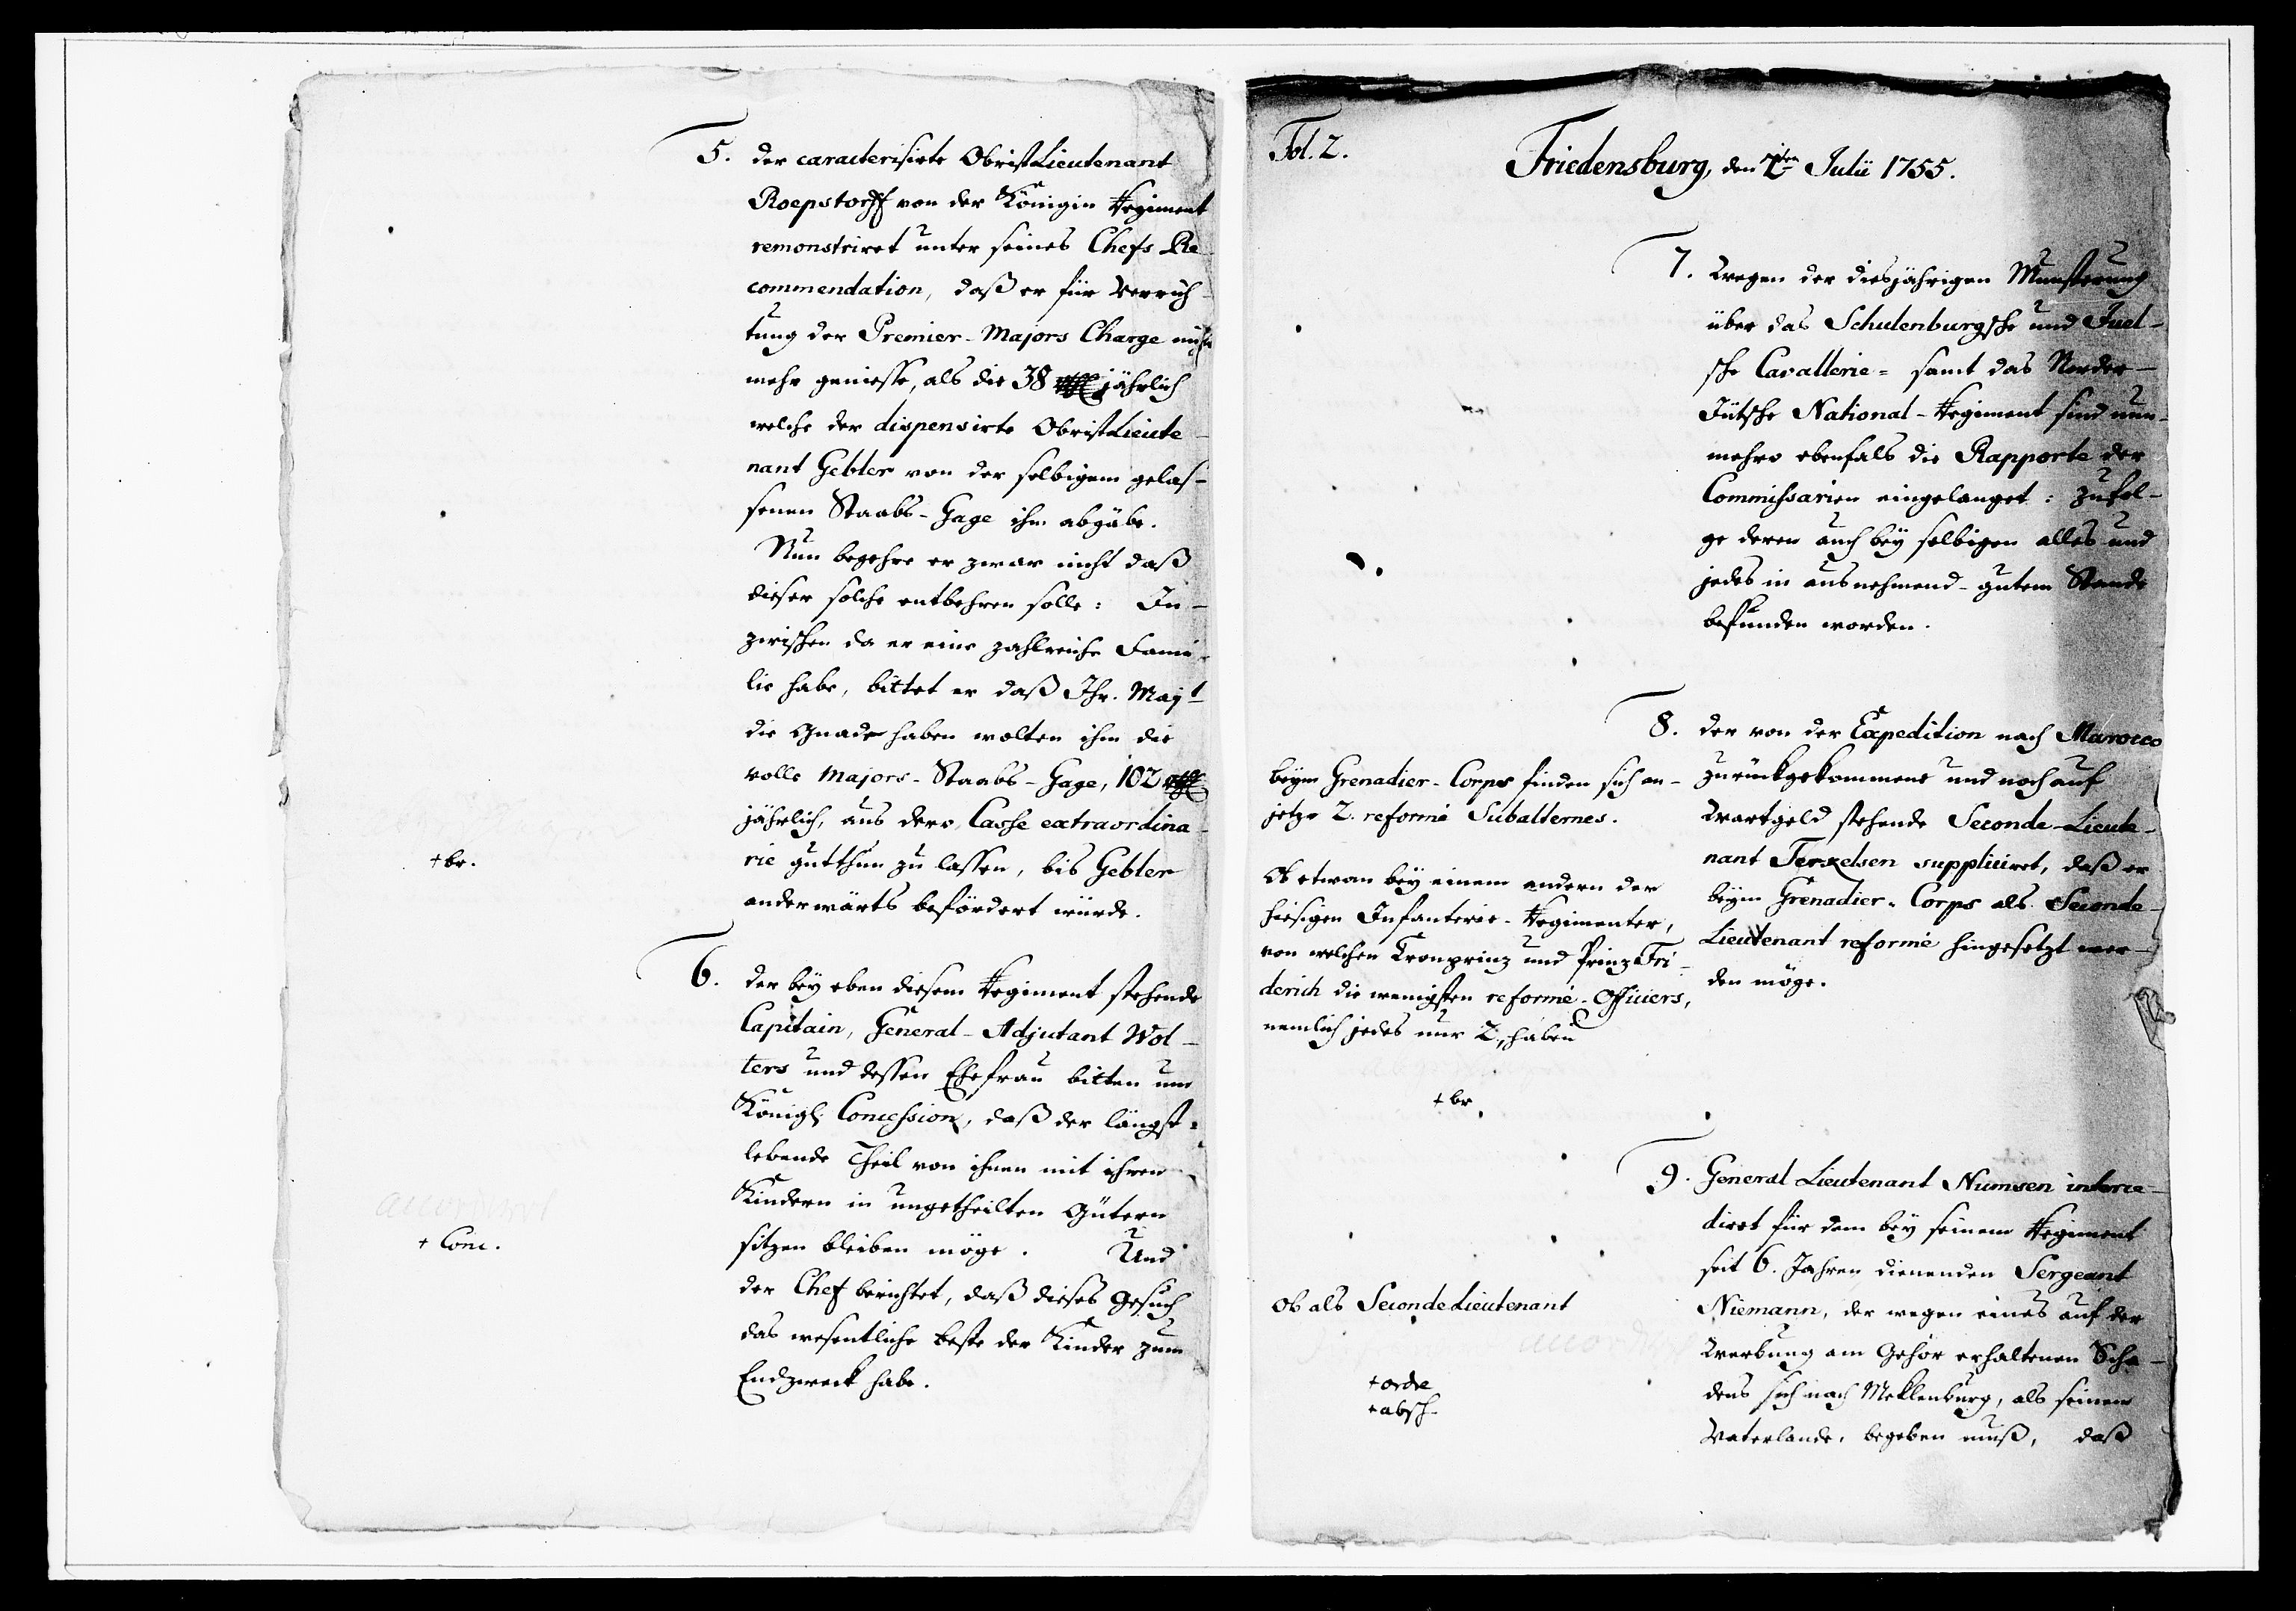 5. der caracterisirte ObristLieutenant
Roepstorff von der Königin Regiment
remonstriret unter seines Chefs Re-
commendation, daß er für Verrich-
tung der Premier-Majors Charge nicht
mehr geniesse, als die 38 rthl jährlich
welche der dispensirte ObristLieute-
nant Gebler von der selbigem gelas-
senen Staabs-Gage ihm abgäbe.
Nun begehre er zwar nicht daß
dieser solche entbehren solle: In-
zwischen da er eine zahlreiche Fami-
lie habe, bittet er daß Ihr. Majt
die Gnade haben wolten ihm die
volle Majors-Staabs-Gage, 102 rthl
jährlich, aus dero Casse extraordina-
rie gutthun zu lassen, bis Gebler
anderwärts befördert würde.
+br.
6. der bey eben diesem Regiment stehende
Capitain, General-Adjutant Wol-
ters und dessen Ehefrau bitten um
Königl. Concession, daß der längst-
lebende Theil von ihnen mit ihren
Kindern in ungetheilten Gütern
sitzen bleiben möge. Und
der Chef berichtet, daß dieses Gesuch
das wesentliche beste der Kinder zum
Endzweck habe.
accordiret
+ Conc.
Fol. 2.
Friedensburg, den 1ten Julii 1755.
7. Wegen der diesjährigen Munsterung
über das Schulenburgsche und Juel-
sche Cavallerie= samt das Norder-
Jütsche National-Regiment sind nun-
mehro ebenfals die Rapporte der
Commissarien eingelanget: zufol-
ge deren auch bey selbigen alles und
jedes in ausnehmend-gutem Stande
befunden worden.
8. der von der Expedition nach Marocco
zurückgekommene und noch auf
Wartgeld stehende Seconde-Lieute-
nant Terkelsen suppliciret, daß er
beym Grenadier-Corps als Seconde-
Lieutenant reformé hingesetzt wer-
den möge.
beym Grenadier-Corps finden sich an-
jetzo 2. reformé Subalternes.
Ob etwan bey einem andern der
hiesigen Infanterie-Regimenter,
von welchen Cronprinz und Prinz Fri-
derich die wenigsten reformé-Officiers,
nemlich jedes nur 2, haben
+br.
9. General Lieutenant Numsen interce-
diret für dem bey seinem Regiment
seit 6. Jahren dienenden Sergeant
Niemann, der wegen eines auf der
Werbung am Gehör erhaltenen Scha-
dens sich nach Meklenburg, als seinem
Vaterlande, begeben muß, daß
ob als SecondeLieutenant
+ordre
+absch.